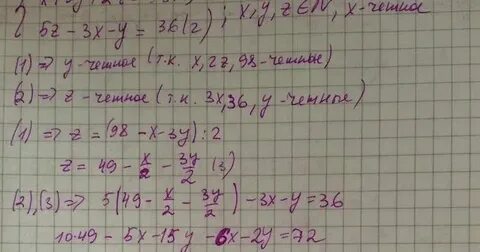 5z - 3x - y = 36 (2) ; x, y, z ∈ N, x - четное
(1) => y - четное (т.к. x, 2z, 98 - четные)
(2) => z - четное (т.к. 3x, 36, y - четные)
(1) => z = (98 - x - 3y) : 2
z = 49 - x/2 - 3y/2 (3)
(2), (3) => 5(49 - x/2 - 3y/2) - 3x - y = 36
10·49 - 5x - 15y - 6x - 2y = 72